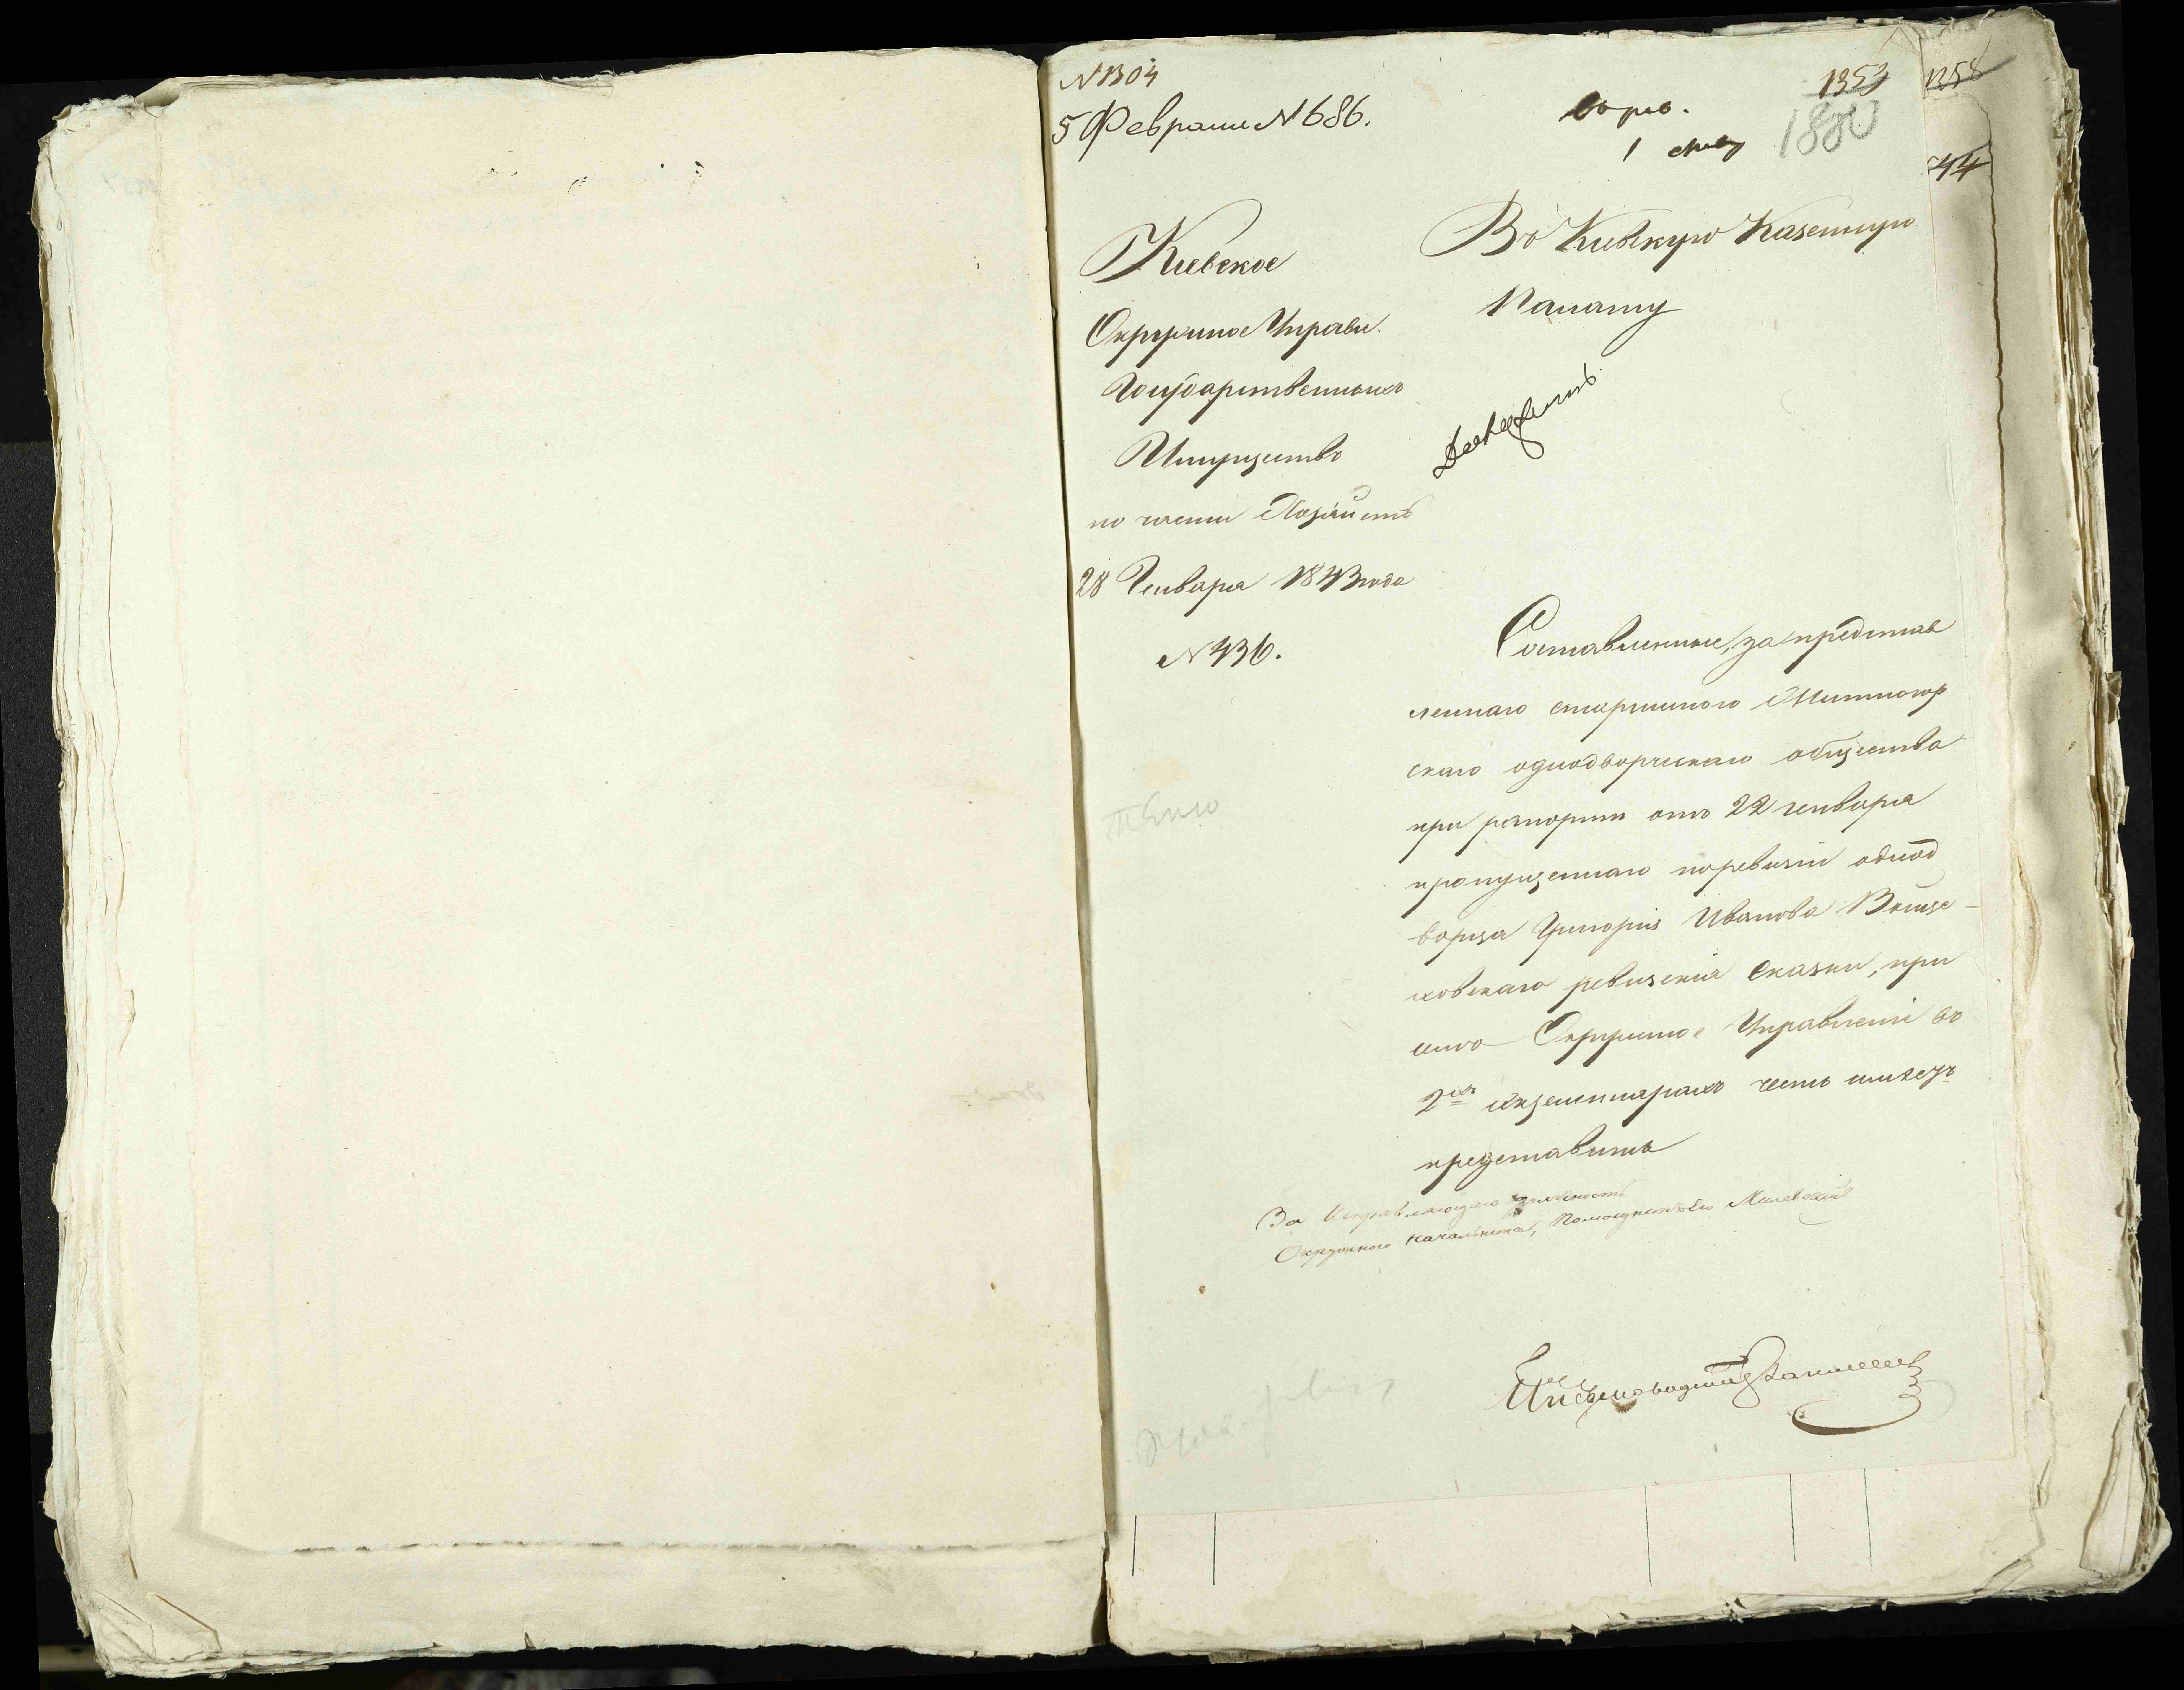 N 1304
5 Февраля N 686.
1353
1358
1880
44
Кіевское
Окружное Управл.
Государственныхъ
Имуществъ
по части Хозяйств
28 Генваря 1843 года
N 436.
Въ Кіевскую Казенную
Палату
Составленные, за представ
леннаго старшиною
скаго однодворческаго общества
при рапорте отъ 22 генваря
пропущеннаго по ревизіи однод
ворца Григорія Иванова Войце-
ховскаго ревизскія сказки, при
сего Окружное Управленіе въ
2хъ экземплярахъ честь имеетъ
представить
За Исправляющаго должность
Окружного Начальника, Помощникъ его
Письмоводитель